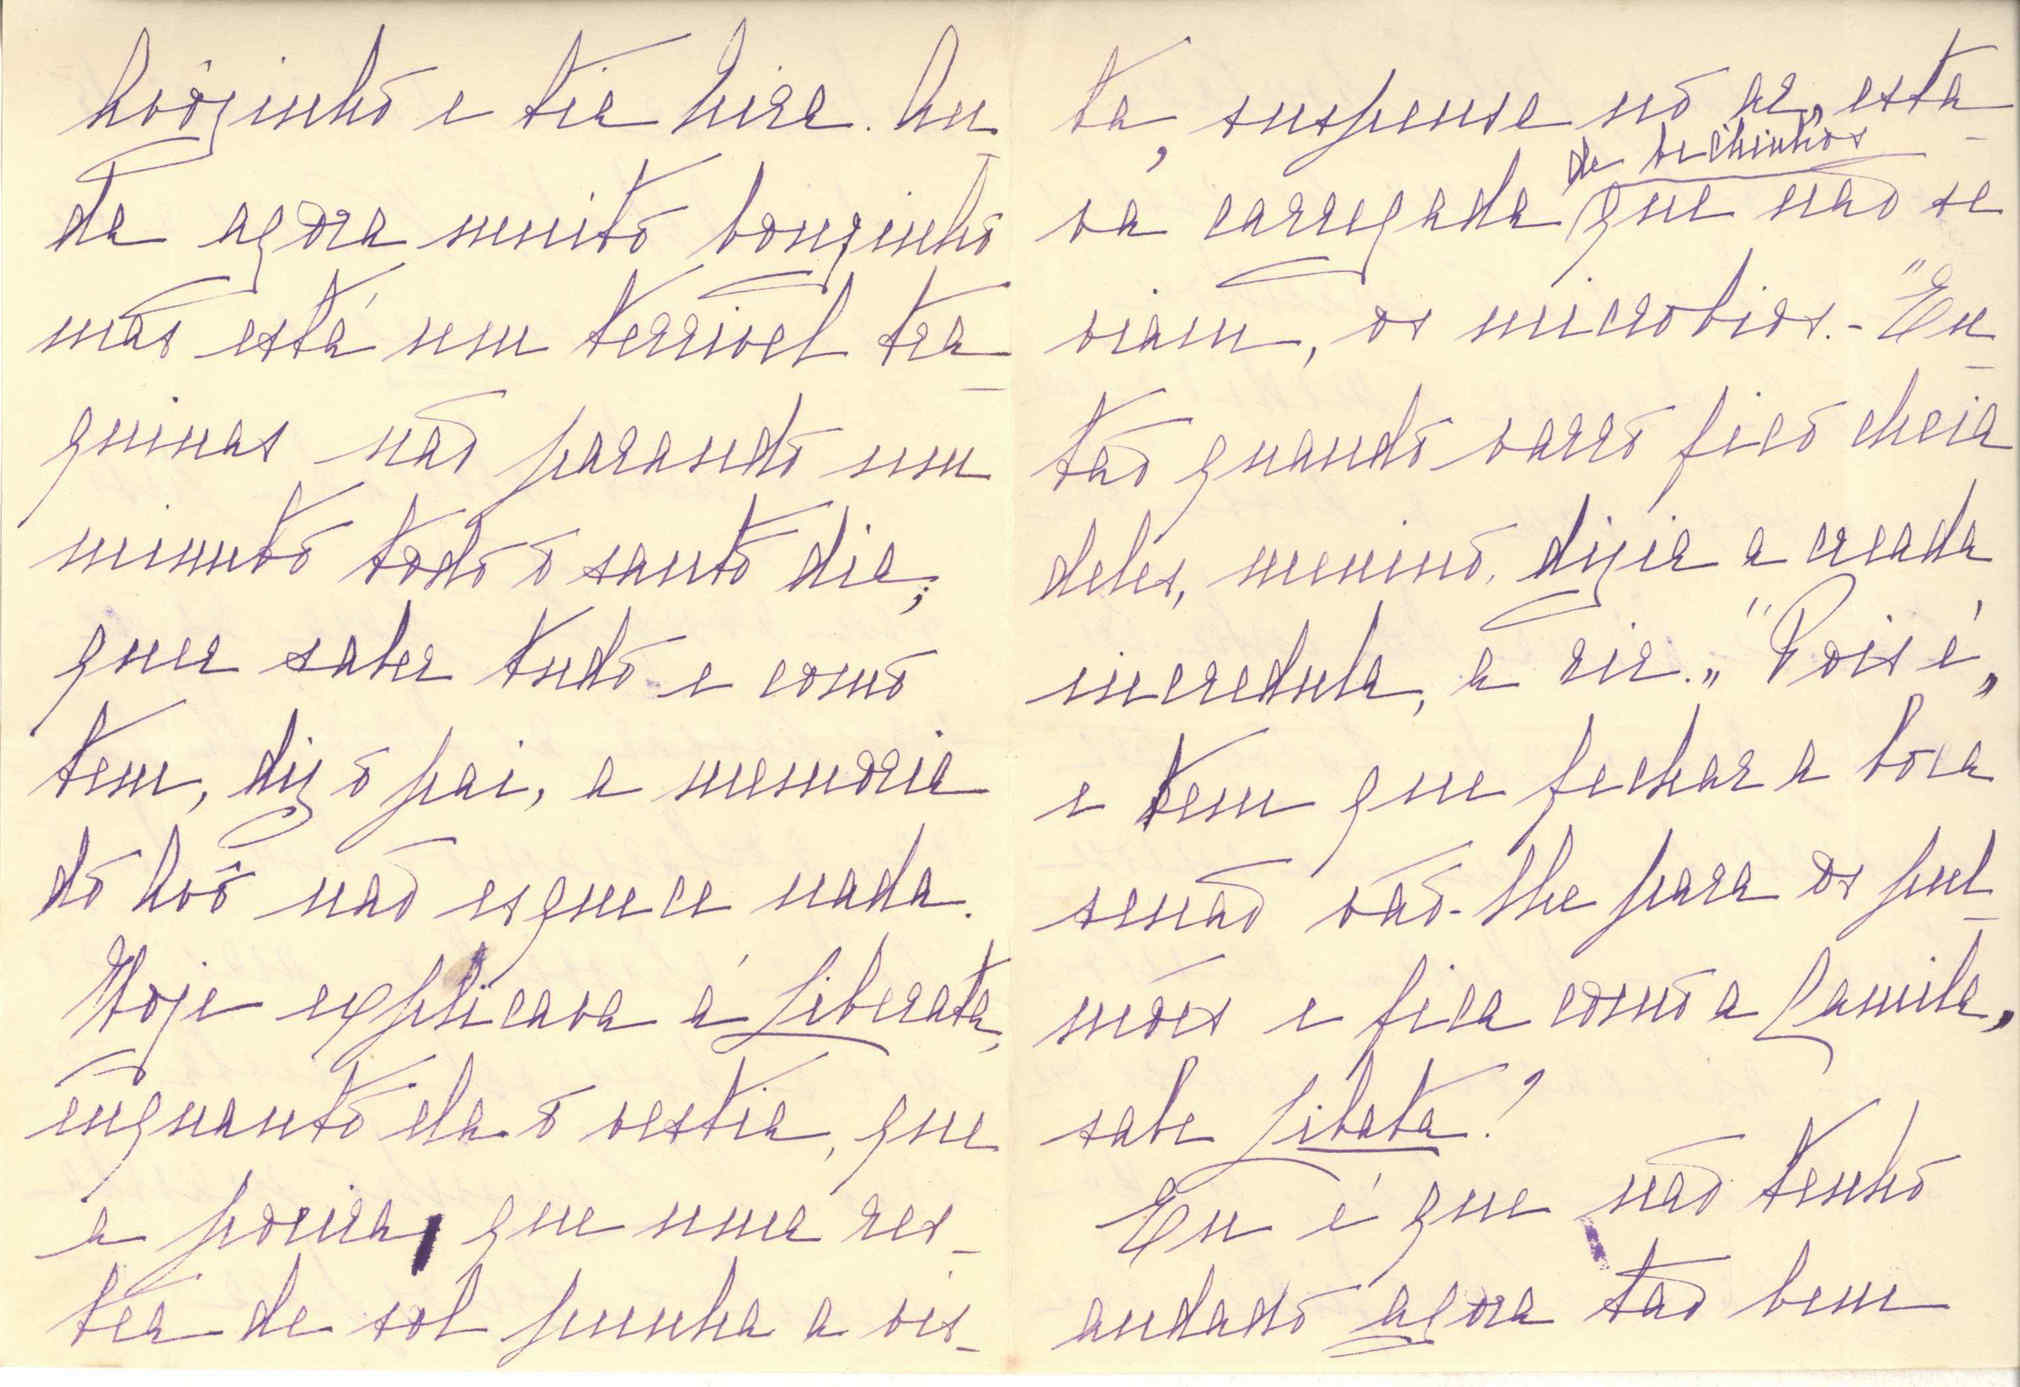 Avôzinho e tia Mira. An-
da agora muito bonzinho
mas está um terrivel tra-
quinas não parando um
minuto todo o santo dia;
quer saber tudo e como
tem, diz o pai, a memoria
do Avô não esquece nada.
Hoje explicava á Liberata,
enquanto ela o vestia, que
a poeira, que uma res-
tea de sol punha a vis-
ta, suspensa no ar, esta-
va carregada de bichinhos que não se
viam, os microbios. - "En-
tão quando varro fico cheia
deles, menino, dizia a creada
incredula, a rir." "Pois é,
e tem que fechar a boca
senão vão-lhe para os pul-
mões e fica como a Camila,
sabe Libata?
Eu é que não tenho
andado agora tão bem